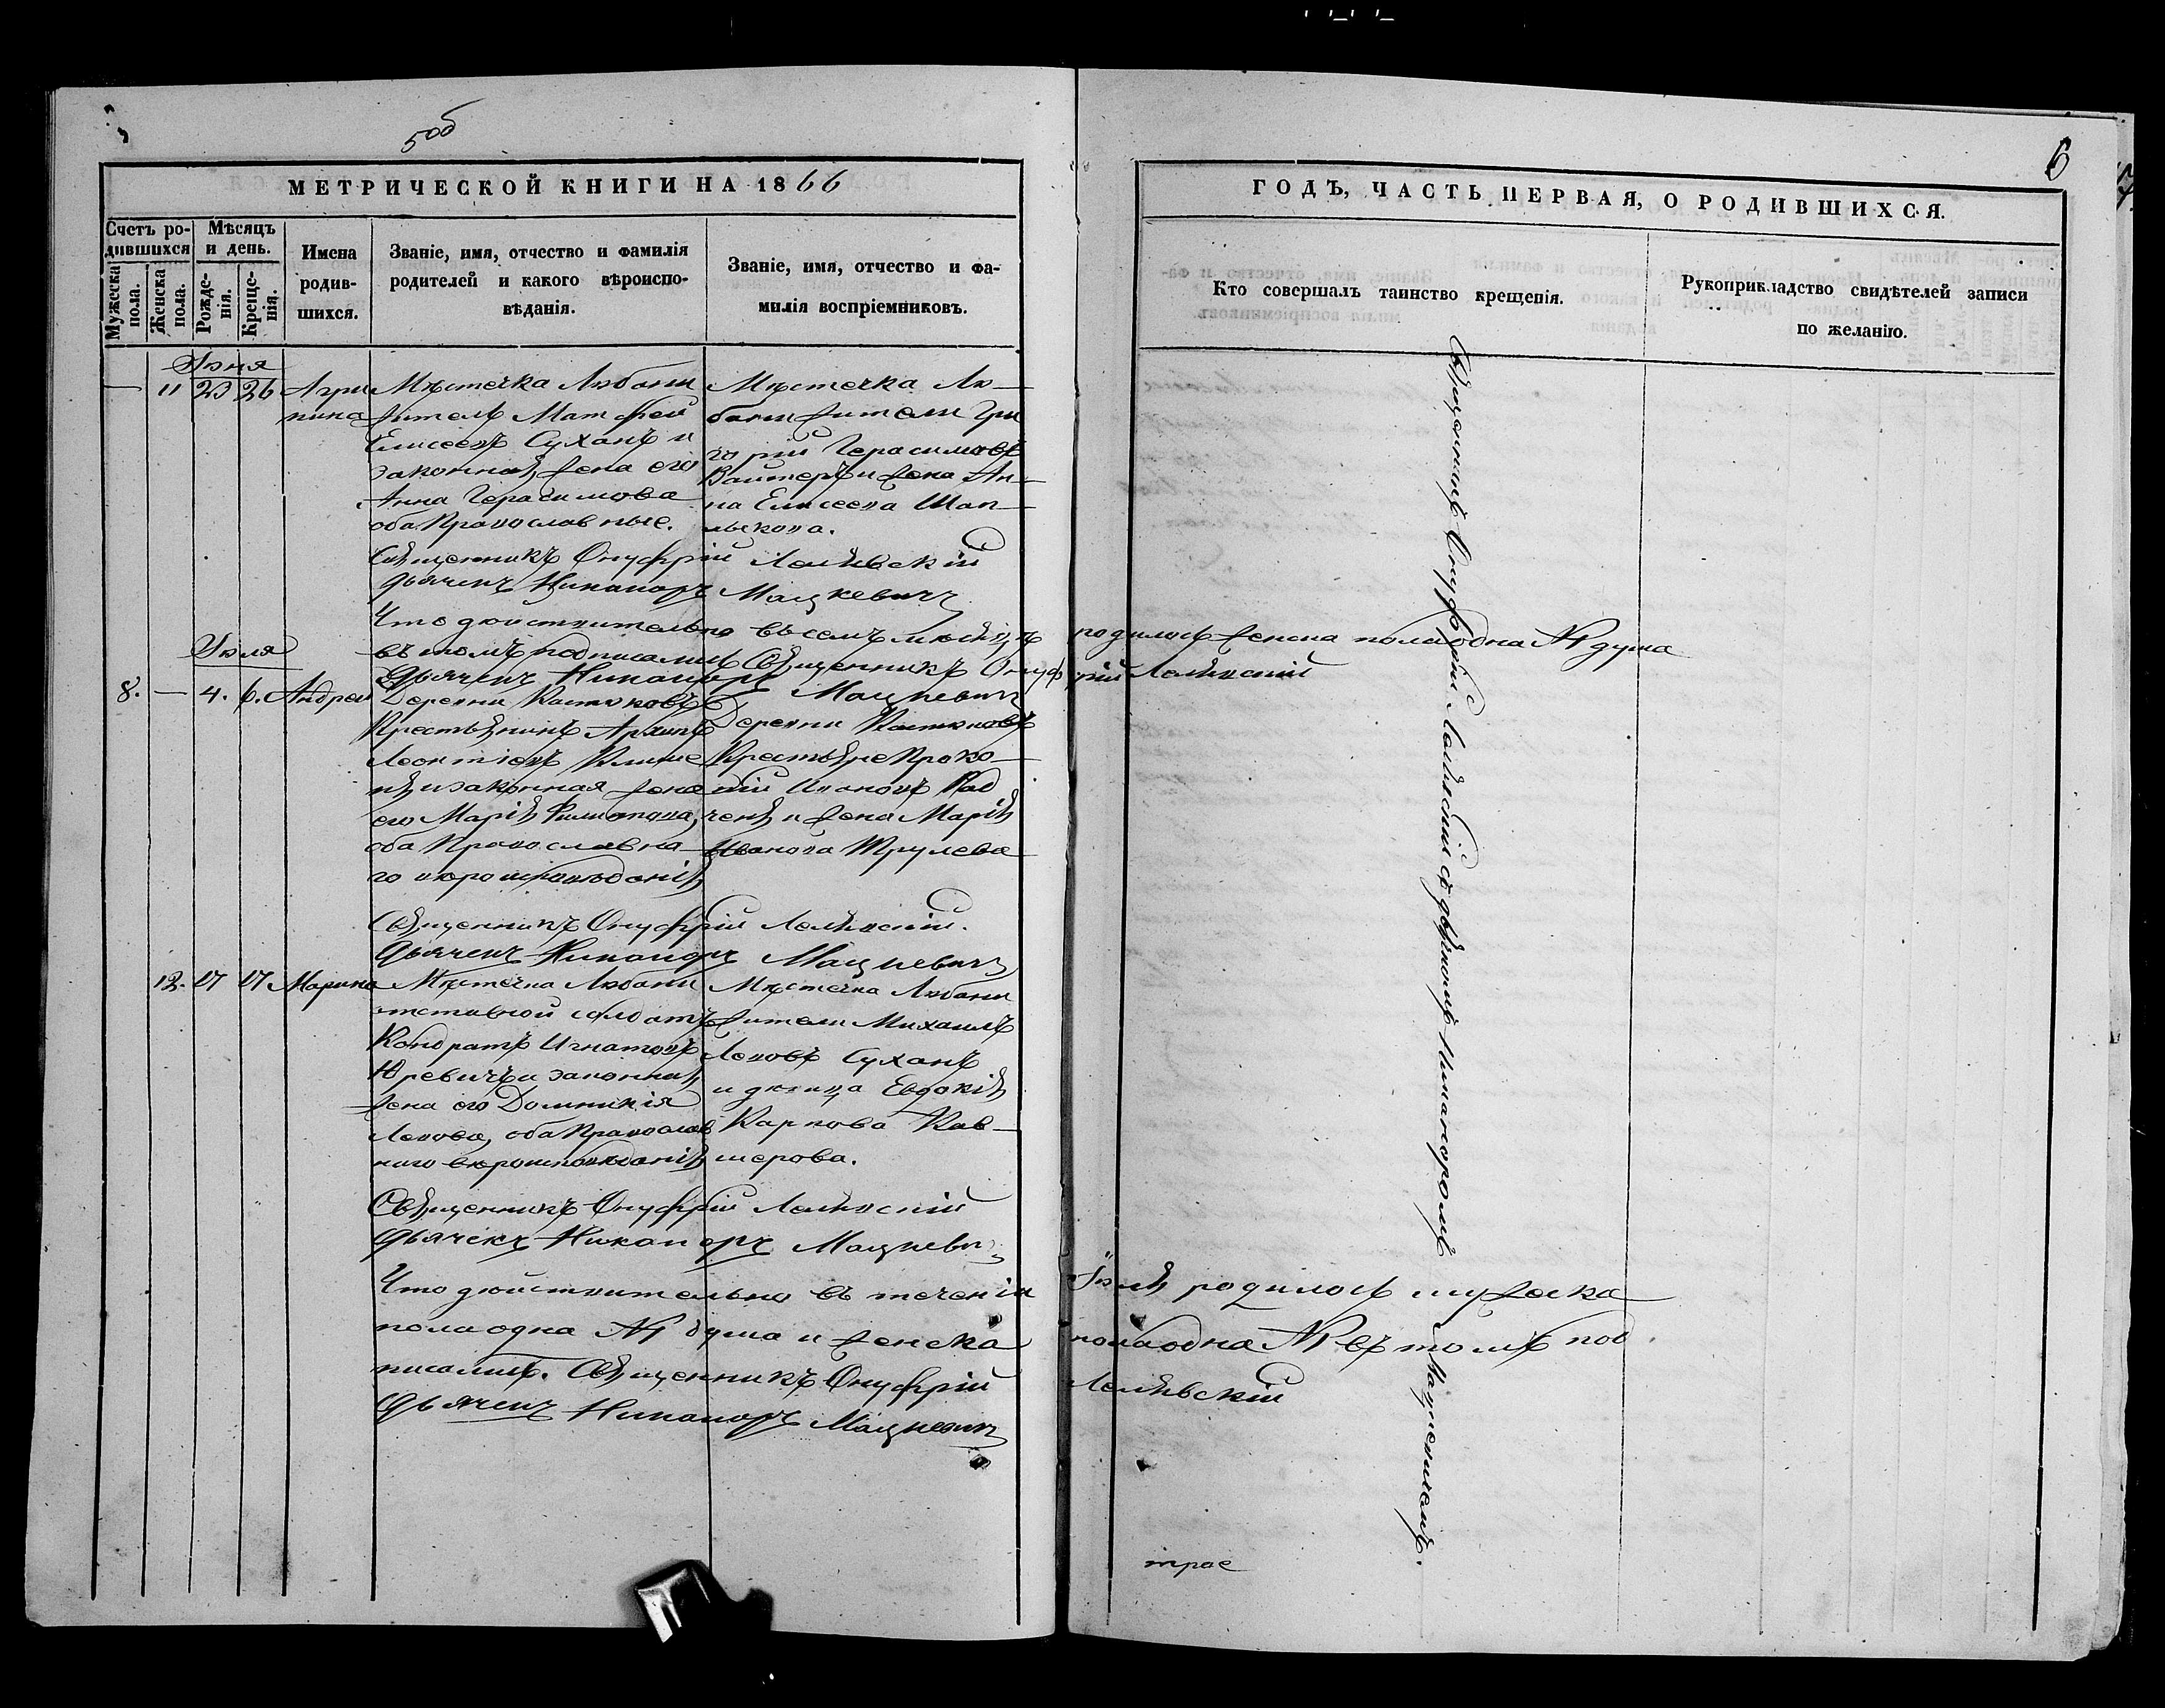 5об
6
МЕТРИЧЕСКОЙ КНИГИ НА 1866
ГОДЪ, ЧАСТЬ ПЕРВАЯ, О РОДИВШИХСЯ.
Счетъ ро-
дившихся
Мѣсяцъ
и день.
Мужеска
пола.
Женска
пола.
Рожде-
нія.
Креще-
нія.
Имена
родив-
шихся.
Званіе, имя, отчество и фамилія
родителей и какого вѣроиспо-
вѣданія.
Званіе, имя, отчество и фа-
милія воспріемниковъ.
Кто совершалъ таинство крещенія.
Рукоприкладство свидѣтелей записи
по желанію.
Іюня
— 11 23 26 Агри
пина
Мѣстечка Любани
житель Матфей
Елисеевъ Суханъ и
законная жена его
Анна Герасимова
оба Православные.
Мѣстечка Лю-
бани жители Гри
горій Герасимовъ
и жена Ан-
на Елисеева
Священникъ Онуфрій
Дьячекъ Никаноръ Мацкевичъ
Что дѣйствительно въ семъ мѣсяцѣ родилось женска пола одна №1 душа
въ томъ подписались Священникъ Онуфрій
Дьячекъ Никаноръ Мацкевичъ
Іюля
8. — 4. 6. Андрей
Деревни Костюковъ
Крестьянинъ Архипъ
Леонтіевъ
и законная жена
его Марія Филипова,
оба Православна-
го вѣроисповѣданія
Деревни Костюковъ
Крестьяне Проко-
пій Ивановъ
и жена Марія
Иванова
Священникъ Онуфрій
Дьячекъ Никаноръ Мацкевичъ
12. 17 17 Марина
Мѣстечка Любани
отставной солдатъ
Кондратъ Игнатовъ
Юревичъ и законная
жена его Доминикія
Левова, оба Православ
наго вѣроисповѣданія
Мѣстечка Любани
жители Михаилъ
Левовъ Суханъ
и дѣвица Евдокія
Карпова
Священникъ Онуфрій
Дьячекъ Никаноръ Мацкевичъ
Что дѣйствительно въ теченіи Іюля родилось мужеска
пола одна №1 душа и женска пола одна №1 въ томъ под
писались. Священникъ Онуфрій
Дьячекъ Никаноръ Мацкевичъ
Священникъ Онуфрій
Никаноромъ
Мацкевичемъ.
трое